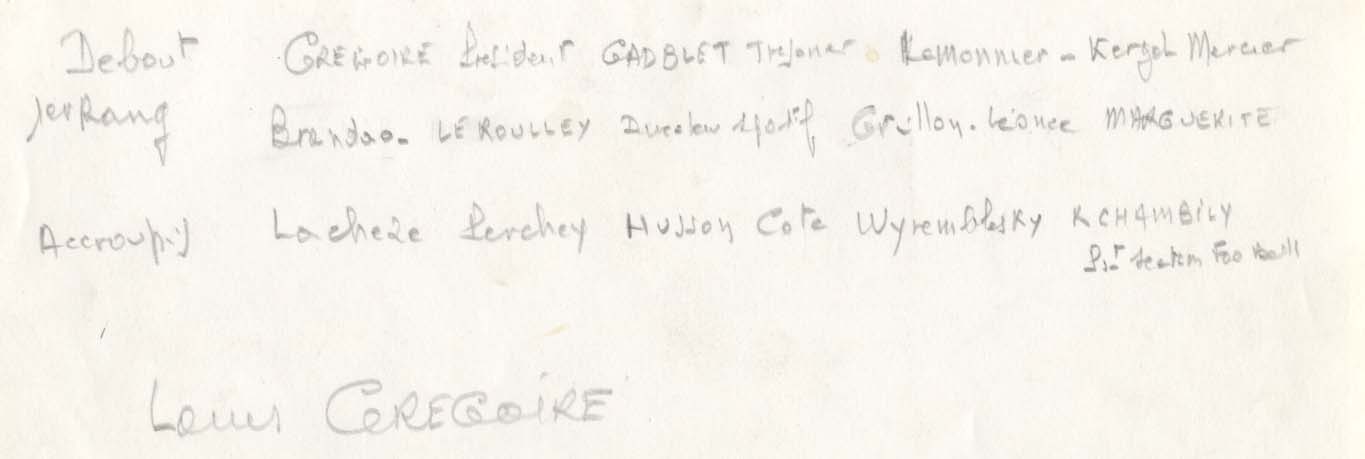 Debout GREGOIRE President GADBLET Tresorier Lemonnier - Kergal Mercier
1er Rang Brandao - LE ROULLEY Directeur sportif Grillon. Léonce MARGUERITE
Accroupis Lacheze Perchey Husson Cote Wyremblesky R CHAMBILY
Pst section Foot ball
Louis GREGOIRE